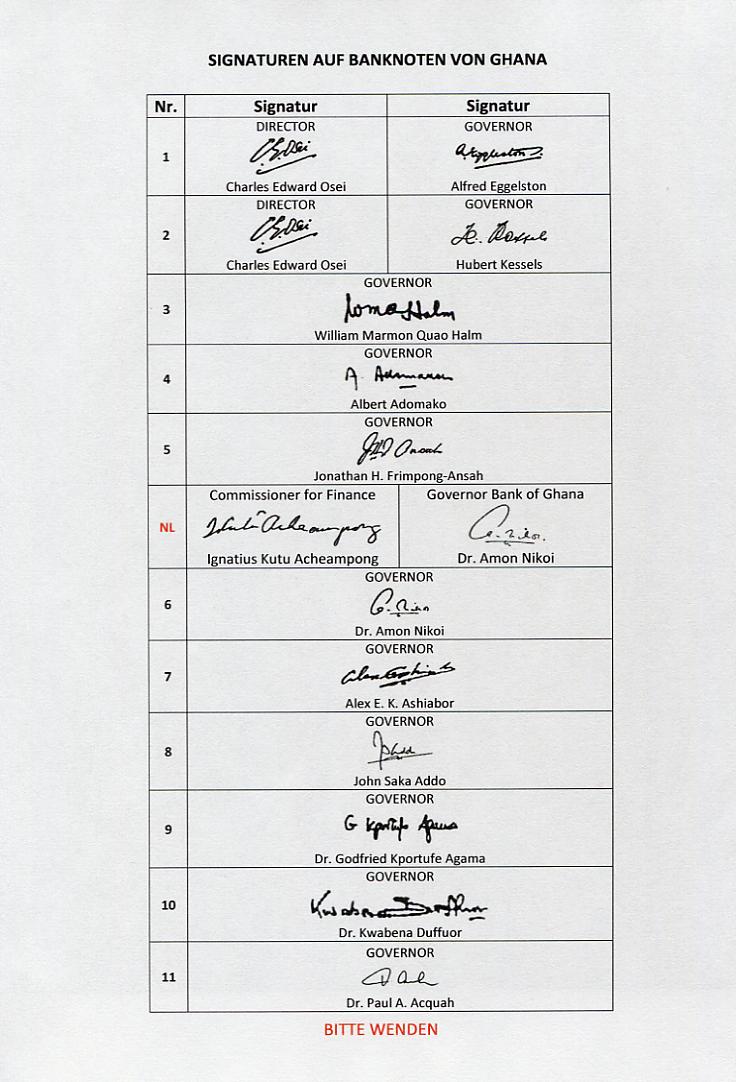 SIGNATUREN AUF BANKNOTEN VON GHANA
Nr. Signatur Signatur
DIRECTOR GOVERNOR
1
Charles Edward Osei Alfred Eggelston
DIRECTOR GOVERNOR
2
Charles Edward Osei Hubert Kessels
GOVERNOR
3
William Marmon Quao Halm
GOVERNOR
4 A. Adomako
Albert Adomako
GOVERNOR
5
Jonathan H. Frimpong-Ansah
Commissioner for Finance Governor Bank of Ghana
NL Kutu Acheampong
Ignatius Kutu Acheampong Dr. Amon Nikoi
GOVERNOR
6
Dr. Amon Nikoi
GOVERNOR
7
Alex E. K. Ashiabor
GOVERNOR
8
John Saka Addo
GOVERNOR
9 G Kportufe Agama
Dr. Godfried Kportufe Agama
GOVERNOR
10 Kwabena Duffuor
Dr. Kwabena Duffuor
GOVERNOR
11
Dr. Paul A. Acquah
BITTE WENDEN